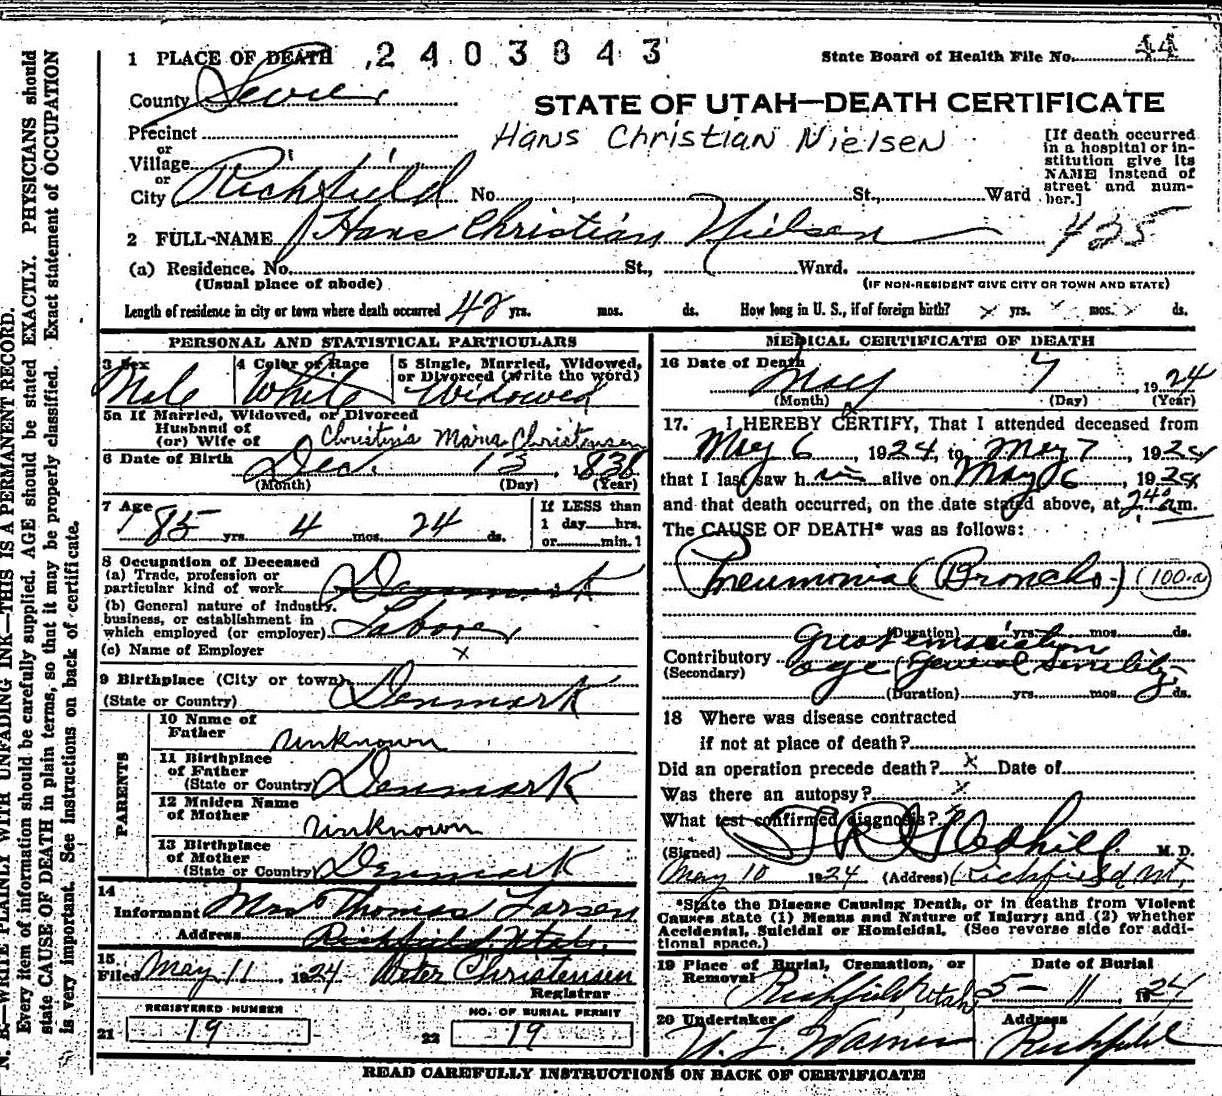 1 PLACE OF DEATH 2403843 State Board of Health File No. 44
County Sevier
STATE OF UTAH—DEATH CERTIFICATE
Precinct
Hans Christian Nielsen
[If death occurred in a hospital or institution give its NAME instead of street and number.]
or
Village
or
City Richfield No. St., Ward
2 FULL-NAME Hans Christian Nielsen 425
(a) Residence. No. St., Ward.
(Usual place of abode) (IF NON-RESIDENT GIVE CITY OR TOWN AND STATE)
Length of residence in city or town where death occurred 42 yrs. mos. ds. How long in U. S., if of foreign birth? x yrs. x mos. x ds.
PERSONAL AND STATISTICAL PARTICULARS
3 Sex 4 Color or Race 5 Single, Married, Widowed,
or Divorced (write the word)
Male White Widowed
5a If Married, Widowed, or Divorced
Husband of
(or) Wife of Christina Maria Christensen
6 Date of Birth Dec. 13, 1838
(Month) (Day) (Year)
7 Age If LESS than
85 yrs 4 mos. 24 ds. 1 day hrs.
or min.?
8 Occupation of Deceased
(a) Trade, profession or
particular kind of work Denmark
(b) General nature of industry,
business, or establishment in
which employed (or employer) Laborer
(c) Name of Employer x
9 Birthplace (City or town)
(State or Country) Denmark
PARENTS
10 Name of
Father unknown
11 Birthplace
of Father
(State or Country) Denmark
12 Maiden Name
of Mother unknown
13 Birthplace
of Mother
(State or Country) Denmark
14
Informant Mrs Thomas Larsen
Address Richfield Utah.
15
Filed May 11 1924 Peter Christensen
Registrar
REGISTERED NUMBER NO. OF BURIAL PERMIT
21 19 22 19
MEDICAL CERTIFICATE OF DEATH
16 Date of Death
May 7, 1924
(Month) (Day) (Year)
17. I HEREBY CERTIFY, That I attended deceased from
May 6, 1924, to May 7, 1924
that I last saw him alive on May 6, 1924
and that death occurred, on the date stated above, at 2 40 a.m.
The CAUSE OF DEATH* was as follows:
Pneumonia (Broncho-) (100-a)
(Duration) yrs. mos. ds.
Contributory
(Secondary) age (General Senility)
(Duration) yrs. mos. ds.
18 Where was disease contracted
if not at place of death?
Did an operation precede death? x Date of
Was there an autopsy? x
What test confirmed diagnosis?
(Signed) Gledhill M. D.
May 10 1924 (Address) Richfield Ut,
*State the Disease Causing Death, or in deaths from Violent
Causes state (1) Means and Nature of Injury; and (2) whether
Accidental, Suicidal or Homicidal. (See reverse side for addi-
tional space.)
19 Place of Burial, Cremation, or
Removal Date of Burial
Richfield Utah 5-11 1924
20 Undertaker Address
W. L. Warner Richfield
READ CAREFULLY INSTRUCTIONS ON BACK OF CERTIFICATE
N. B.—WRITE PLAINLY WITH UNFADING INK—THIS IS A PERMANENT RECORD.
Every item of information should be carefully supplied. AGE should be stated EXACTLY. PHYSICIANS should
state CAUSE OF DEATH in plain terms, so that it may be properly classified. Exact statement of OCCUPATION
is very important. See instructions on back of certificate.